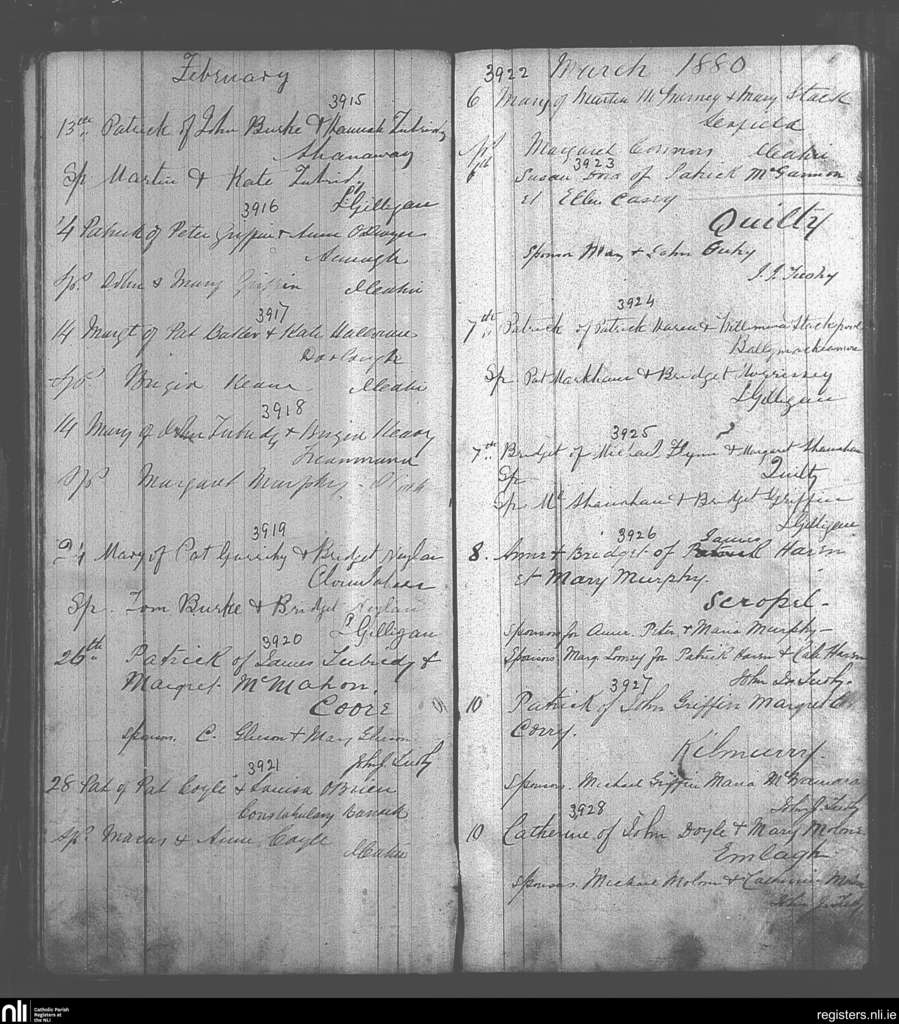 February
3915
13th Patrick of John Burke & Hannah Tubridy
Shanaway
Sp Martin & Kate Tubridy
P Gilligan
3916
14 Patrick of Peter Griffin & Anne
Annagh
Sps John & Mary Griffin Meahir
3917
14 Margt of Pat & Kate
Sps Brigid Keane Meahir
3918
14 Mary of John Tubridy & Brigid Keary
Sps Margaret Murphy
3919
24 Mary of Pat & Bridget Neylan
Sp. Tom Burke & Bridget Neylan
P Gilligan
3920
26th Patrick of James Tubridy &
Margret McMahon.
Coore
Sponsors. C. Gleeson & Mary Gleeson
John J Tuohy
3921
28 Pat of Pat Coyle & Louisa O'Brien
Constabulary Barrack
Sps & Anne Coyle
Meahir
3922 March 1880
6 Mary of Martin McInerney & Mary Stack
Seafield
Sps Margaret Connors Meahir
3923
6th Susan of Patrick McGannon
et Ellen Casey
Quilty
Sponsors Mary & John
J. J. Tuohy
3924
7th Patrick of Patrick Haren & Willmina Stackpool
Ballymackeamore
Sp Pat Markham & Bridget Morrissey
P Gilligan
3925
7th Bridget of Michael Flynn & Margaret Shanahan
Sp Quilty
Sp Ml Shanahan & Bridget Griffin
P Gilligan
3926
8. Anne & Bridget of James Haren
et Mary Murphy.
Scropel.
Sponsors for Anne. Peter & Maria Murphy
Sponsors Marg Looney for Patrick Haren & Cate Haren
John J. Tuohy.
3927
10 Patrick of John Griffin Margret
Corry.
Kilmurry.
Sponsors. Michael Griffin Maria McNamara
John J. Tuohy
3928
10 Catherine of John Doyle & Mary Molone
Emlagh
Sponsors. Michael Molone & Catherine
John J. Tuohy
nli
Catholic Parish
Registers at
the NLI
registers.nli.ie